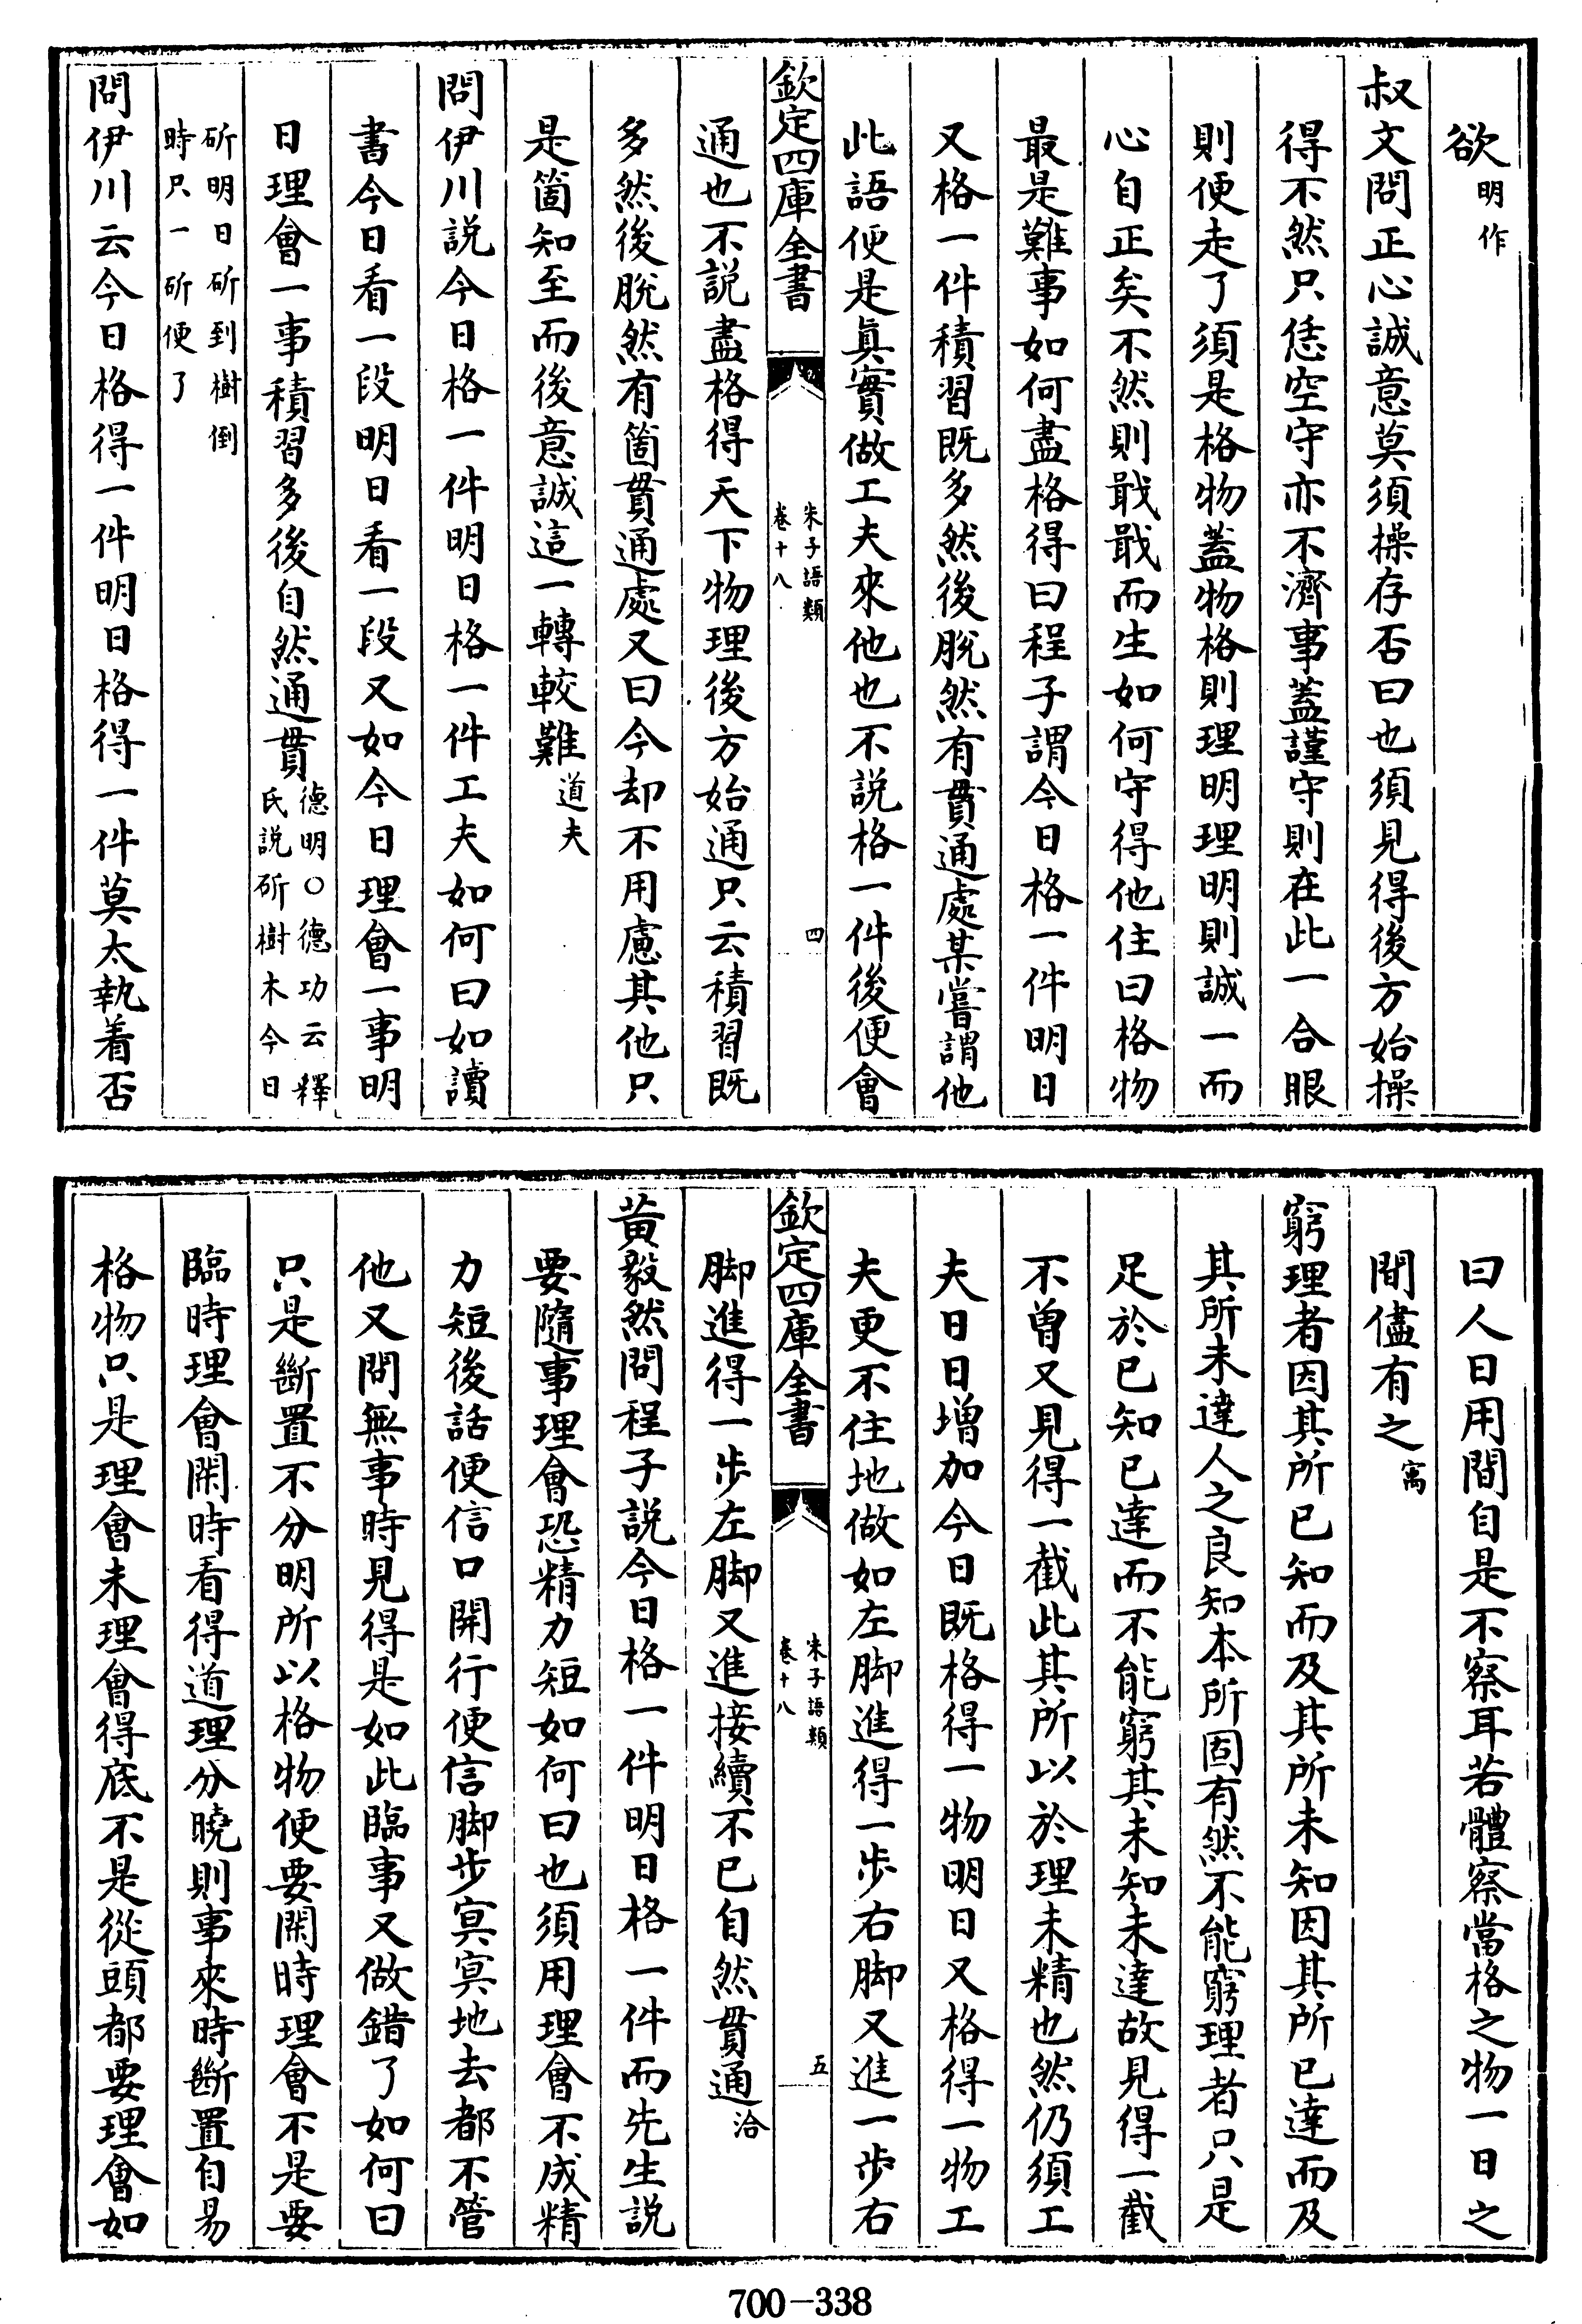 欲明作
叔文問正心誠意莫須操存否曰也須見得後方始操
得不然只恁空守亦不濟事蓋謹守則在此一合眼
則便走了須是格物蓋物格則理明理明則誠一而
心自正矣不然則戢戢而生如何守得他住曰格物
最是難事如何盡格得曰程子謂今日格一件明日
又格一件積習既多然後脫然有貫通處某嘗謂他
此語便是眞實做工夫來他也不説格一件後便會
欽定四庫全書
朱子語類
卷十八
四
通也不説盡格得天下物理後方始通只云積習既
多然後脫然有箇貫通處又曰今却不用慮其他只
是箇知至而後意誠這一轉較難道夫
問伊川説今日格一件明日格一件工夫如何曰如讀
書今日看一段明日看一段又如今日理會一事明
日理會一事積習多後自然通貫德明○德功云釋
氏説斫樹木今日
斫明日斫到樹倒
時只一斫便了
問伊川云今日格得一件明日格得一件莫太執着否
曰人日用間自是不察耳若體察當格之物一日之
間儘有之寓
窮理者因其所已知而及其所未知因其所已達而及
其所未達人之良知本所固有然不能窮理者只是
足於已知已達而不能窮其未知未達故見得一截
不曽又見得一截此其所以於理未精也然仍須工
夫日日增加今日既格得一物明日又格得一物工
夫更不住地做如左脚進得一步右脚又進一步右
欽定四庫全書
朱子語類
卷十八
五
脚進得一步左脚又進接續不已自然貫通洽
黄毅然問程子説今日格一件明日格一件而先生説
要隨事理會恐精力短如何曰也須用理會不成精
力短後話便信口開行便信脚步冥冥地去都不管
他又問無事時見得是如此臨事又做錯了如何曰
只是斷置不分明所以格物便要閑時理會不是要
臨時理會閑時看得道理分曉則事來時斷置自易
格物只是理會未理會得底不是從頭都要理會如
700-338